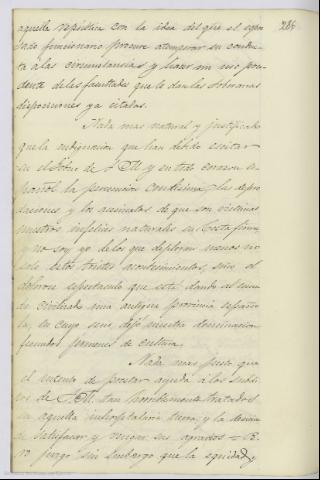 286
aquella república con la idea de que el agra
ciado funcionario procure atemperar su conduc
ta à las circunstancias y hacer un uso pru
dente de las facultades que le dan las soberanas
disposiciones ya citadas.
Nada mas natural y justificado
que la indignacion que han debido escitar
en el Gobno de S. M. y en todo corazon es
pañol la persecucion cruelisima, las depre
daciones y los asesinatos de que son víctimas
nuestros infelices naturales en Costa firme
y no soy yo de los que deploran menos no
solo estos tristes acontecimientos, sino el
doloroso espectaculo que está dando al mun
do civilizado una antigua provincia españo
la, en cuyo seno dejó nuestra dominacion
fecundos germenes de cultura.
Nada mas justo que
el intento de prestar ayuda á los subdi
tos de S. M. tan hondamente tratados
en aquella inhospitalaria tierra, y la decision
de satisfacer y vengar sus agravios = Pe
ro juzgo sin embargo que la equidad y